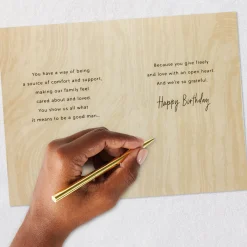 You have a way of being
a source of comfort and support,
making our family feel
cared about and loved.
You show us all what
it means to be a good man...
Because you give freely
and love with an open heart.
And we're so grateful.
Happy Birthday